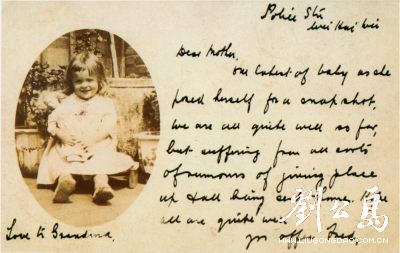 Police Stn
Wei Hai Wei
Dear Mother,
Our latest of baby as she
posed herself for a snap shot,
We are all quite well so far,
but suffering from all sorts
of rumours of joining place
up & all being sent home.
all are quite well
yrs affec. Fred
Love to Grandma.
劉公島
WWW.LIUGONGDAO.COM.CN